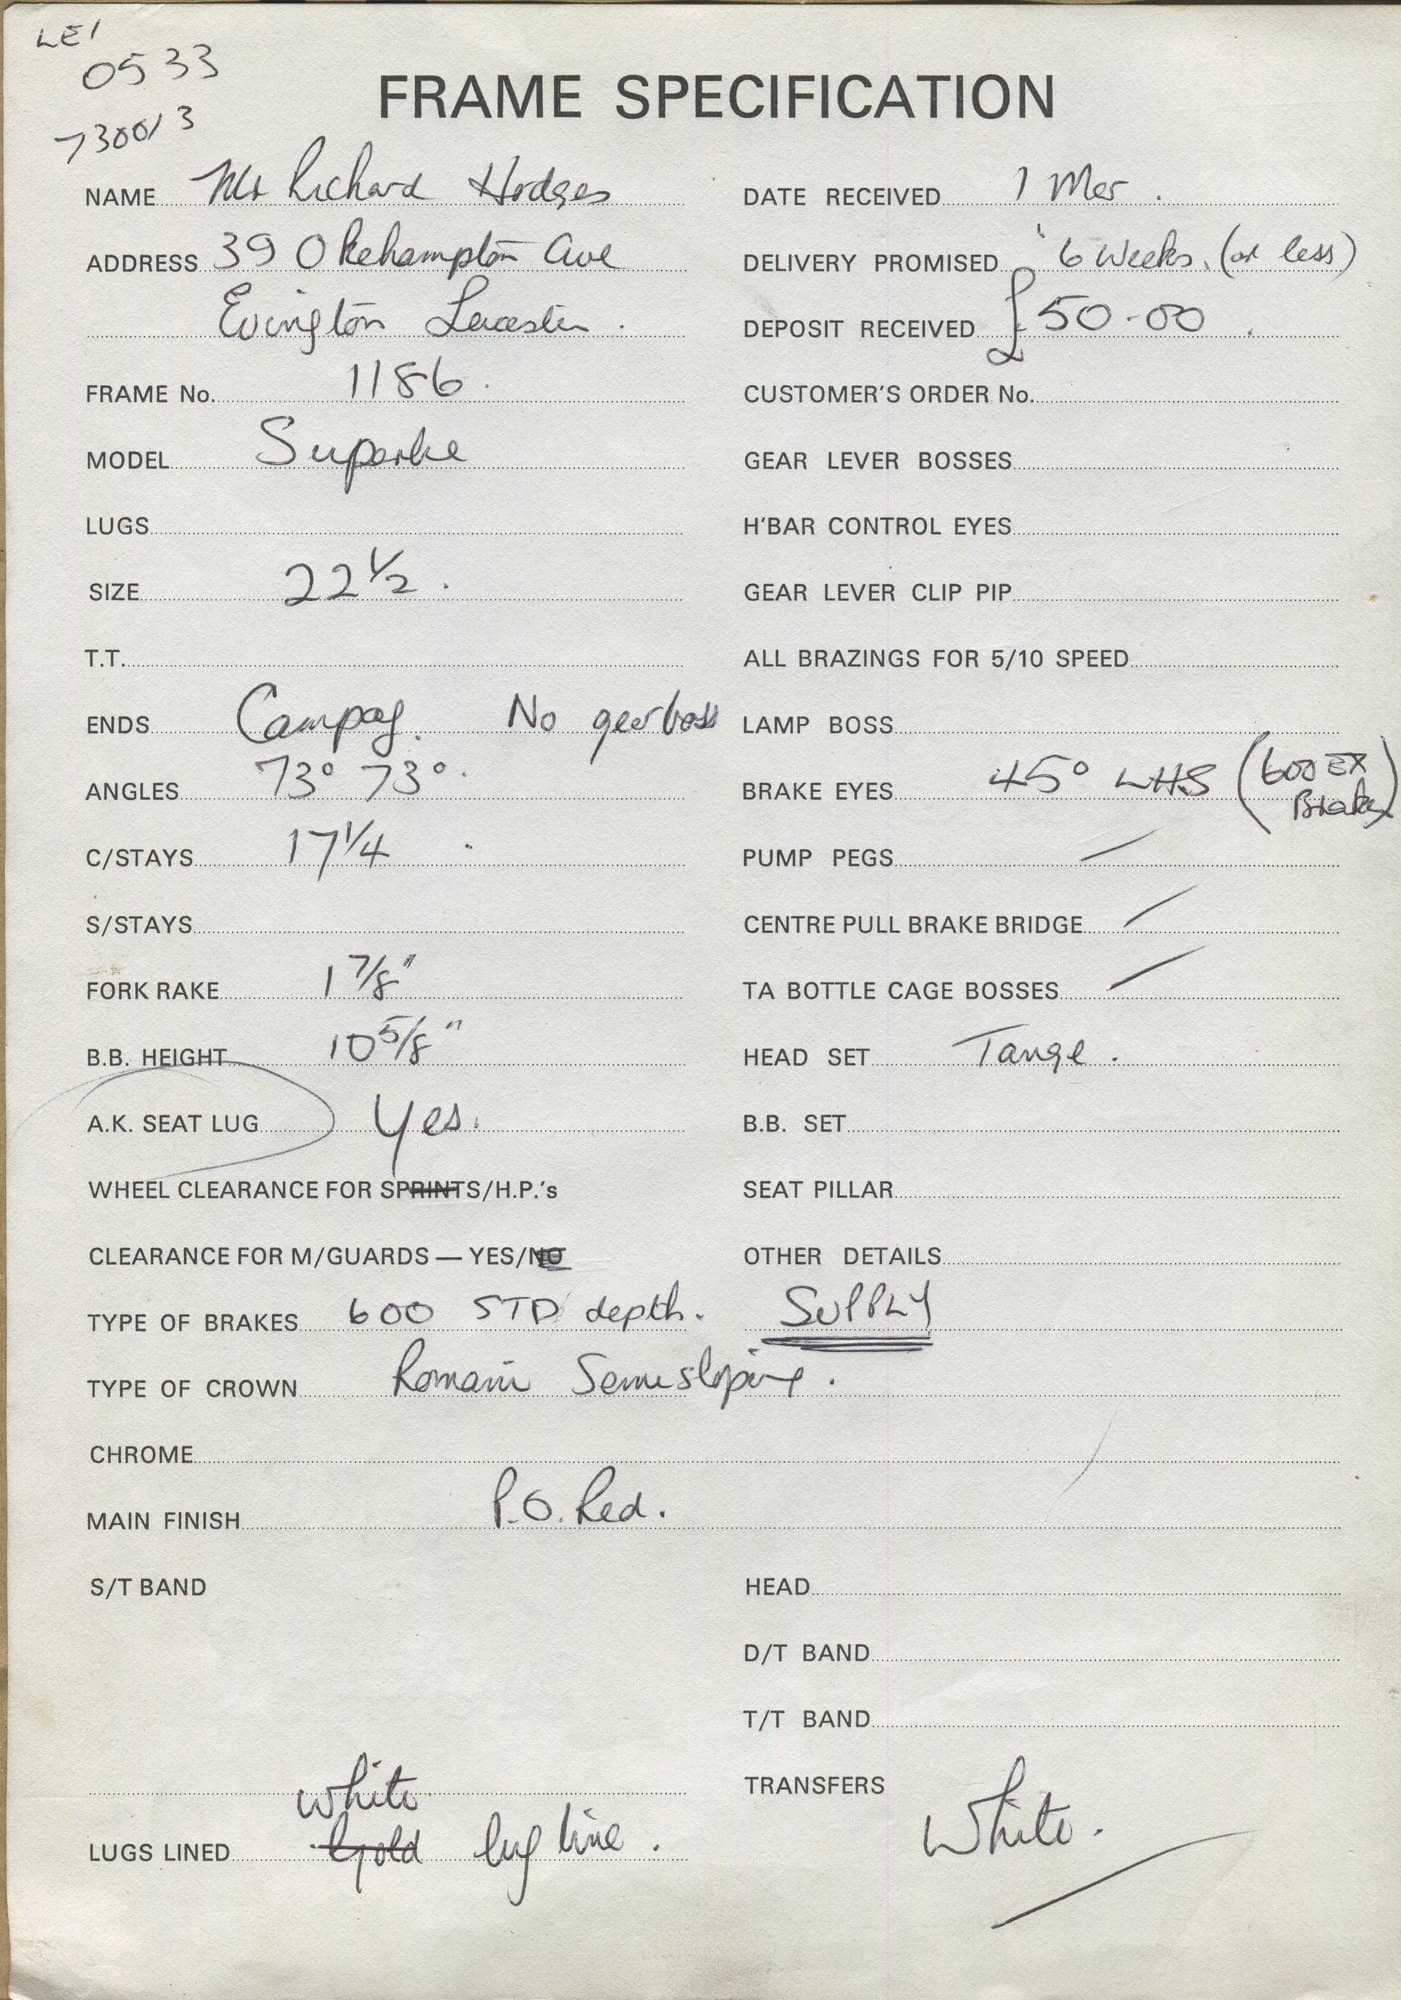 LEI
0533
730013
FRAME SPECIFICATION
NAME Mr Richard Hodges
ADDRESS 39 Okehampton Ave
Evington Leicester.
FRAME No. 1186.
MODEL Superbe
LUGS
SIZE 22 1/2.
T.T.
ENDS Campag. No gear boss
ANGLES 73° 73°.
C/STAYS 17 1/4
S/STAYS
FORK RAKE 1 7/8"
B.B. HEIGHT 10 5/8"
A.K. SEAT LUG Yes.
WHEEL CLEARANCE FOR SPRINTS/H.P.'s
CLEARANCE FOR M/GUARDS — YES/NO
TYPE OF BRAKES 600 STD depth.
TYPE OF CROWN Romani Semi sloping.
CHROME
MAIN FINISH P.O. Red.
S/T BAND
White
LUGS LINED Gold lug line.
DATE RECEIVED 1 Mar.
DELIVERY PROMISED 6 Weeks. (or less)
DEPOSIT RECEIVED £50-00.
CUSTOMER'S ORDER No.
GEAR LEVER BOSSES
H'BAR CONTROL EYES
GEAR LEVER CLIP PIP
ALL BRAZINGS FOR 5/10 SPEED
LAMP BOSS
BRAKE EYES 45° LHS (600 EX
Brakes)
PUMP PEGS /
CENTRE PULL BRAKE BRIDGE /
TA BOTTLE CAGE BOSSES /
HEAD SET Tange.
B.B. SET
SEAT PILLAR
OTHER DETAILS
SUPPLY
HEAD
D/T BAND
T/T BAND
TRANSFERS
White.